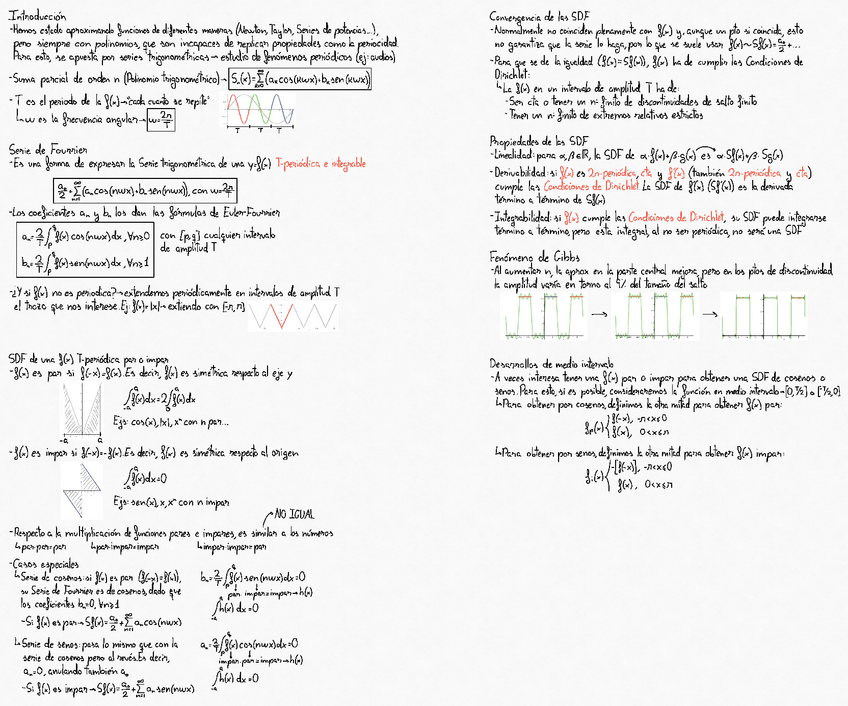 Introducción
-Hemos estado aproximando funciones de diferentes maneras (Newton, Taylor, Series de potencias...),
pero siempre con polinomios, que son incapaces de replicar propiedades como la periocidad.
Para esto, se apuesta por series trigonométricas → estudio de fenómenos periódicos (ej: audios)
-Suma parcial de orden n (Polinomio trigonométrico) →
-T es el periodo de la f(x) → "cada cuanto se repite"
↳ω es la frecuencia angular → ω=2π/T
T T T
Serie de Fourrier
-Es una forma de expresar la Serie trigonométrica de una y=f(x) T-periódica e integrable
a₀/2+∑(aₙcos(nωx)+bₙsen(nωx)), con ω=2π/T
-Los coeficientes aₙ y bₙ los dan las fórmulas de Euler-Fourrier
aₙ=2/T∫f(x)cos(nωx)dx, ∀n≥0
con [p,q] cualquier intervalo
de amplitud T
bₙ=2/T∫f(x)sen(nωx)dx, ∀n≥1
-¿Y si f(x) no es periodica? → extendemos periódicamente en intervalos de amplitud T
el trozo que nos interese. Ej: f(x)=|x| → extiendo con [-π,π]
SDF de una f(x) T-periódica par o impar
-f(x) es par si f(-x)=f(x). Es decir, f(x) es simétrica respecto al eje y
∫f(x)dx=2∫f(x)dx
Ejs: cos(x), |x|, xⁿ con n par...
-a a
-f(x) es impar si f(-x)=-f(x). Es decir, f(x) es simétrica respecto al origen
∫f(x)dx=0
Ejs: sen(x), x, xⁿ con n impar
NO IGUAL
-Respecto a la multiplicación de funciones pares e impares, es similar a los números
↳par·par=par ↳par·impar=impar ↳impar·impar=par
-Casos especiales
↳Serie de cosenos: si f(x) es par (f(-x)=f(x)),
su Serie de Fourrier es de cosenos, dado que
los coeficientes bₙ=0, ∀n≥1
-Si f(x) es par → Sf(x)=a₀/2+∑aₙcos(nωx)
bₙ=2/T∫f(x)sen(nωx)dx=0
par·impar=impar → h(x)
∫h(x)dx=0
↳Serie de senos: pasa lo mismo que con la
serie de cosenos pero al revés. Es decir,
aₙ=0, anulando también a₀
-Si f(x) es impar → Sf(x)=a₀/2+∑aₙsen(nωx)
aₙ=2/T∫f(x)cos(nωx)dx=0
impar·par=impar → h(x)
∫h(x)dx=0
Convergencia de las SDF
-Normalmente no coinciden plenamente con f(x) y, aunque un pto si coincida, esto
no garantiza que la serie lo haga, por lo que se suele usar f(x)~Sf(x)=a₀/2+...
-Para que se de la igualdad (f(x)=Sf(x)), f(x) ha de cumplir las Condiciones de
Dirichlet:
↳La f(x) en un intervalo de amplitud T ha de:
-Ser cta o tener un nº finito de discontinuidades de salto finito
-Tener un nº finito de extremos relativos estrictos
Propiedades de las SDF
-Linealidad: para α,β∈ℝ, la SDF de α·f(x)+β·g(x) es α·Sf(x)+β·Sg(x)
-Derivabilidad: si f(x) es 2π-periódica, cta y f'(x) (también 2π-periódica y cta)
cumple las Condiciones de Dirichlet. La SDF de f'(x) (Sf'(x)) es la derivada
término a término de Sf(x)
-Integrabilidad: si f(x) cumple las Condiciones de Dirichlet, su SDF puede integrarse
término a término, pero esta integral, al no ser periódica, no será una SDF
Fenómeno de Gibbs
-Al aumentar n, la aprox en la parte central mejora, pero en los ptos de discontinuidad
la amplitud varía en torno al 9% del tamaño del salto
Desarrollos de medio intervalo
-A veces interesa tener una f(x) par o impar para obtener una SDF de cosenos o
senos. Para esto, si es posible, consideraremos la función en medio intervalo → [0,T/2] o [-T/2,0]
↳Para obtener por cosenos, definimos la otra mitad para obtener f(x) par:
fₚ(x) { f(-x), -π<x≤0
f(x), 0<x≤π
↳Para obtener por senos, definimos la otra mitad para obtener f(x) impar:
fᵢ(x) { -[f(-x)], -π<x≤0
f(x), 0<x≤π